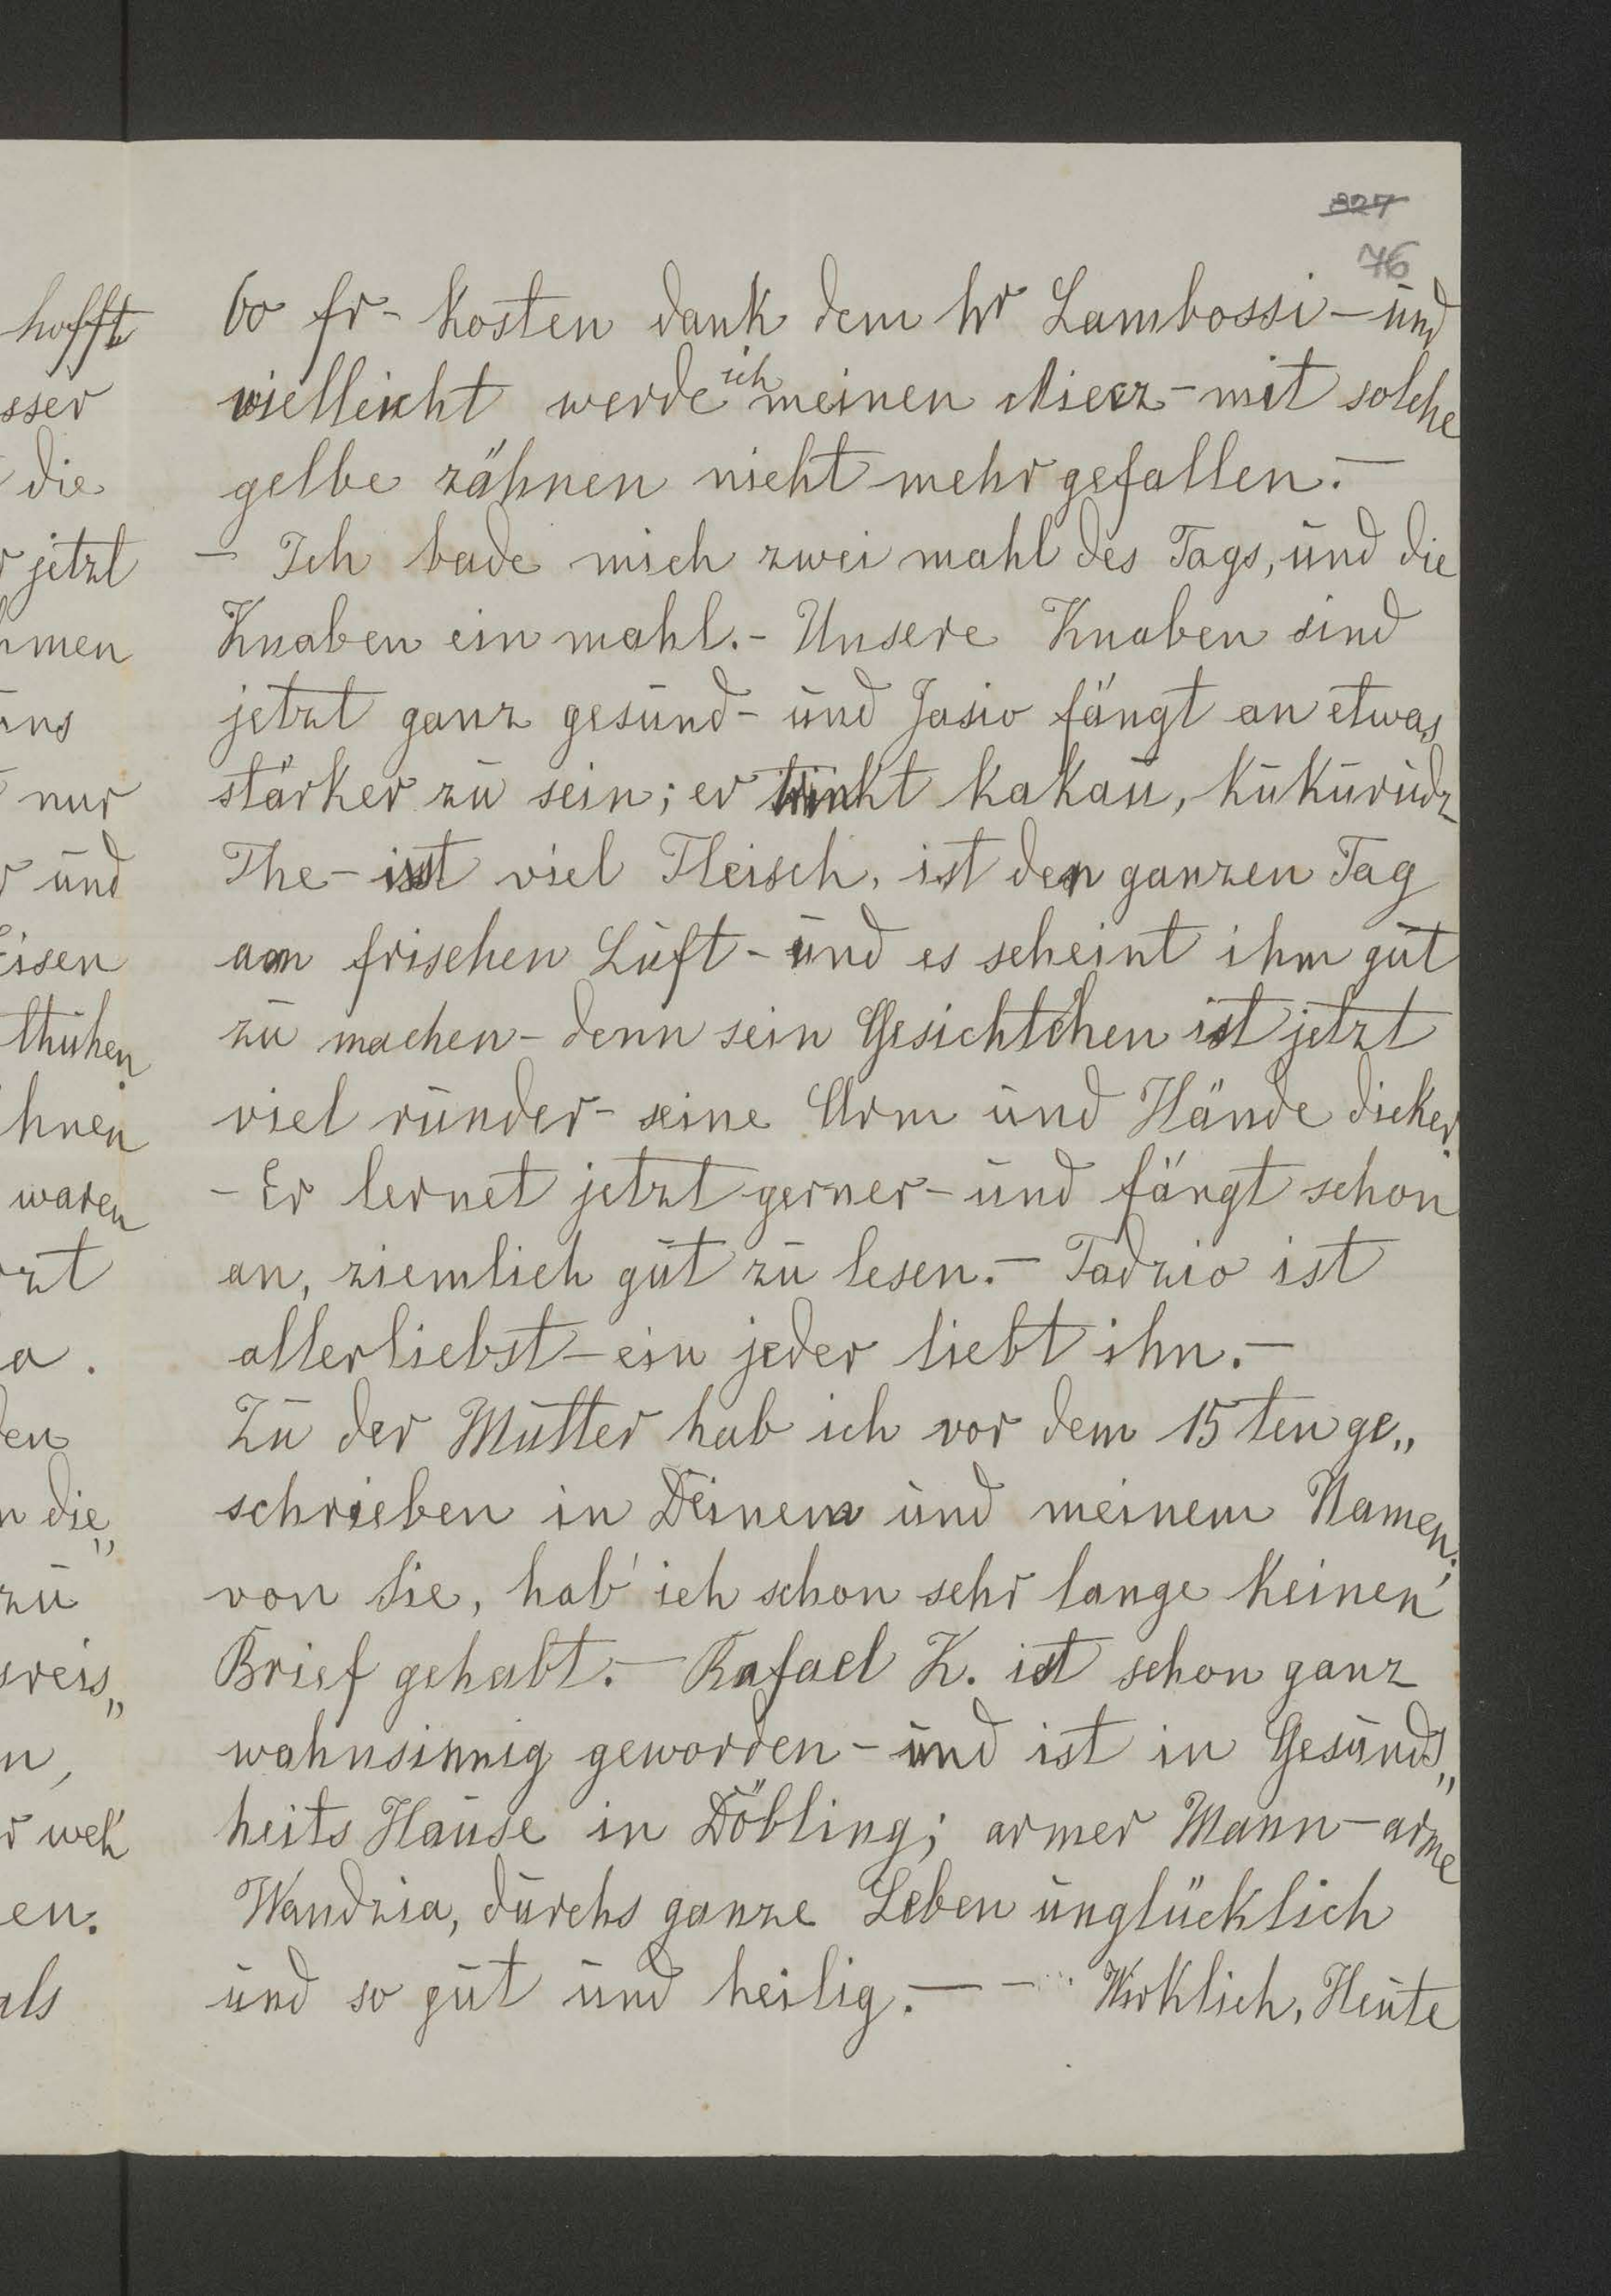 327
76
hofft
sser
die
r jetzt
hmen
uns
nur
r und
Eisen
thuhen
hnen
waren
rzt
a.
den
n die„
zu
sreis„
n,
r weh
en.
als
60 fr- kosten dank dem hr Lambossi - und
vielleicht werde ich meinen Miecz - mit solche
gelbe zähnen nicht mehr gefallen. -
- Ich bade mich zwei mahl des Tags, und die
Knaben ein mahl. - Unsere Knaben sind
jetzt ganz gesund - und Jasio fängt an etwas
stärker zu sein; er trinkt kakau, kukurudz
The - isst viel Fleisch, ist den ganzen Tag
am frischen Luft - und es scheint ihm gut
zu machen - denn sein Gesichtchen ist jetzt
viel runder - seine Arm und Hände dicker.
- Er lernet jetzt gerner - und fängt schon
an, ziemlich gut zu lesen. - Tadzio ist
allerliebst - ein jeder liebt ihn. -
Zu der Mutter hab ich vor dem 15ten ge„
schrieben in Deinem und meinem Namen;
von Sie, hab' ich schon sehr lange keinen
Brief gehabt. - Rafael K. ist schon ganz
wahnsinnig geworden - und ist in Gesunds„
heits Hause in Döbling; armer Mann - arme
Wandzia, durchs ganze Leben unglücklich
und so gut und heilig. - - Wirklich, Heute